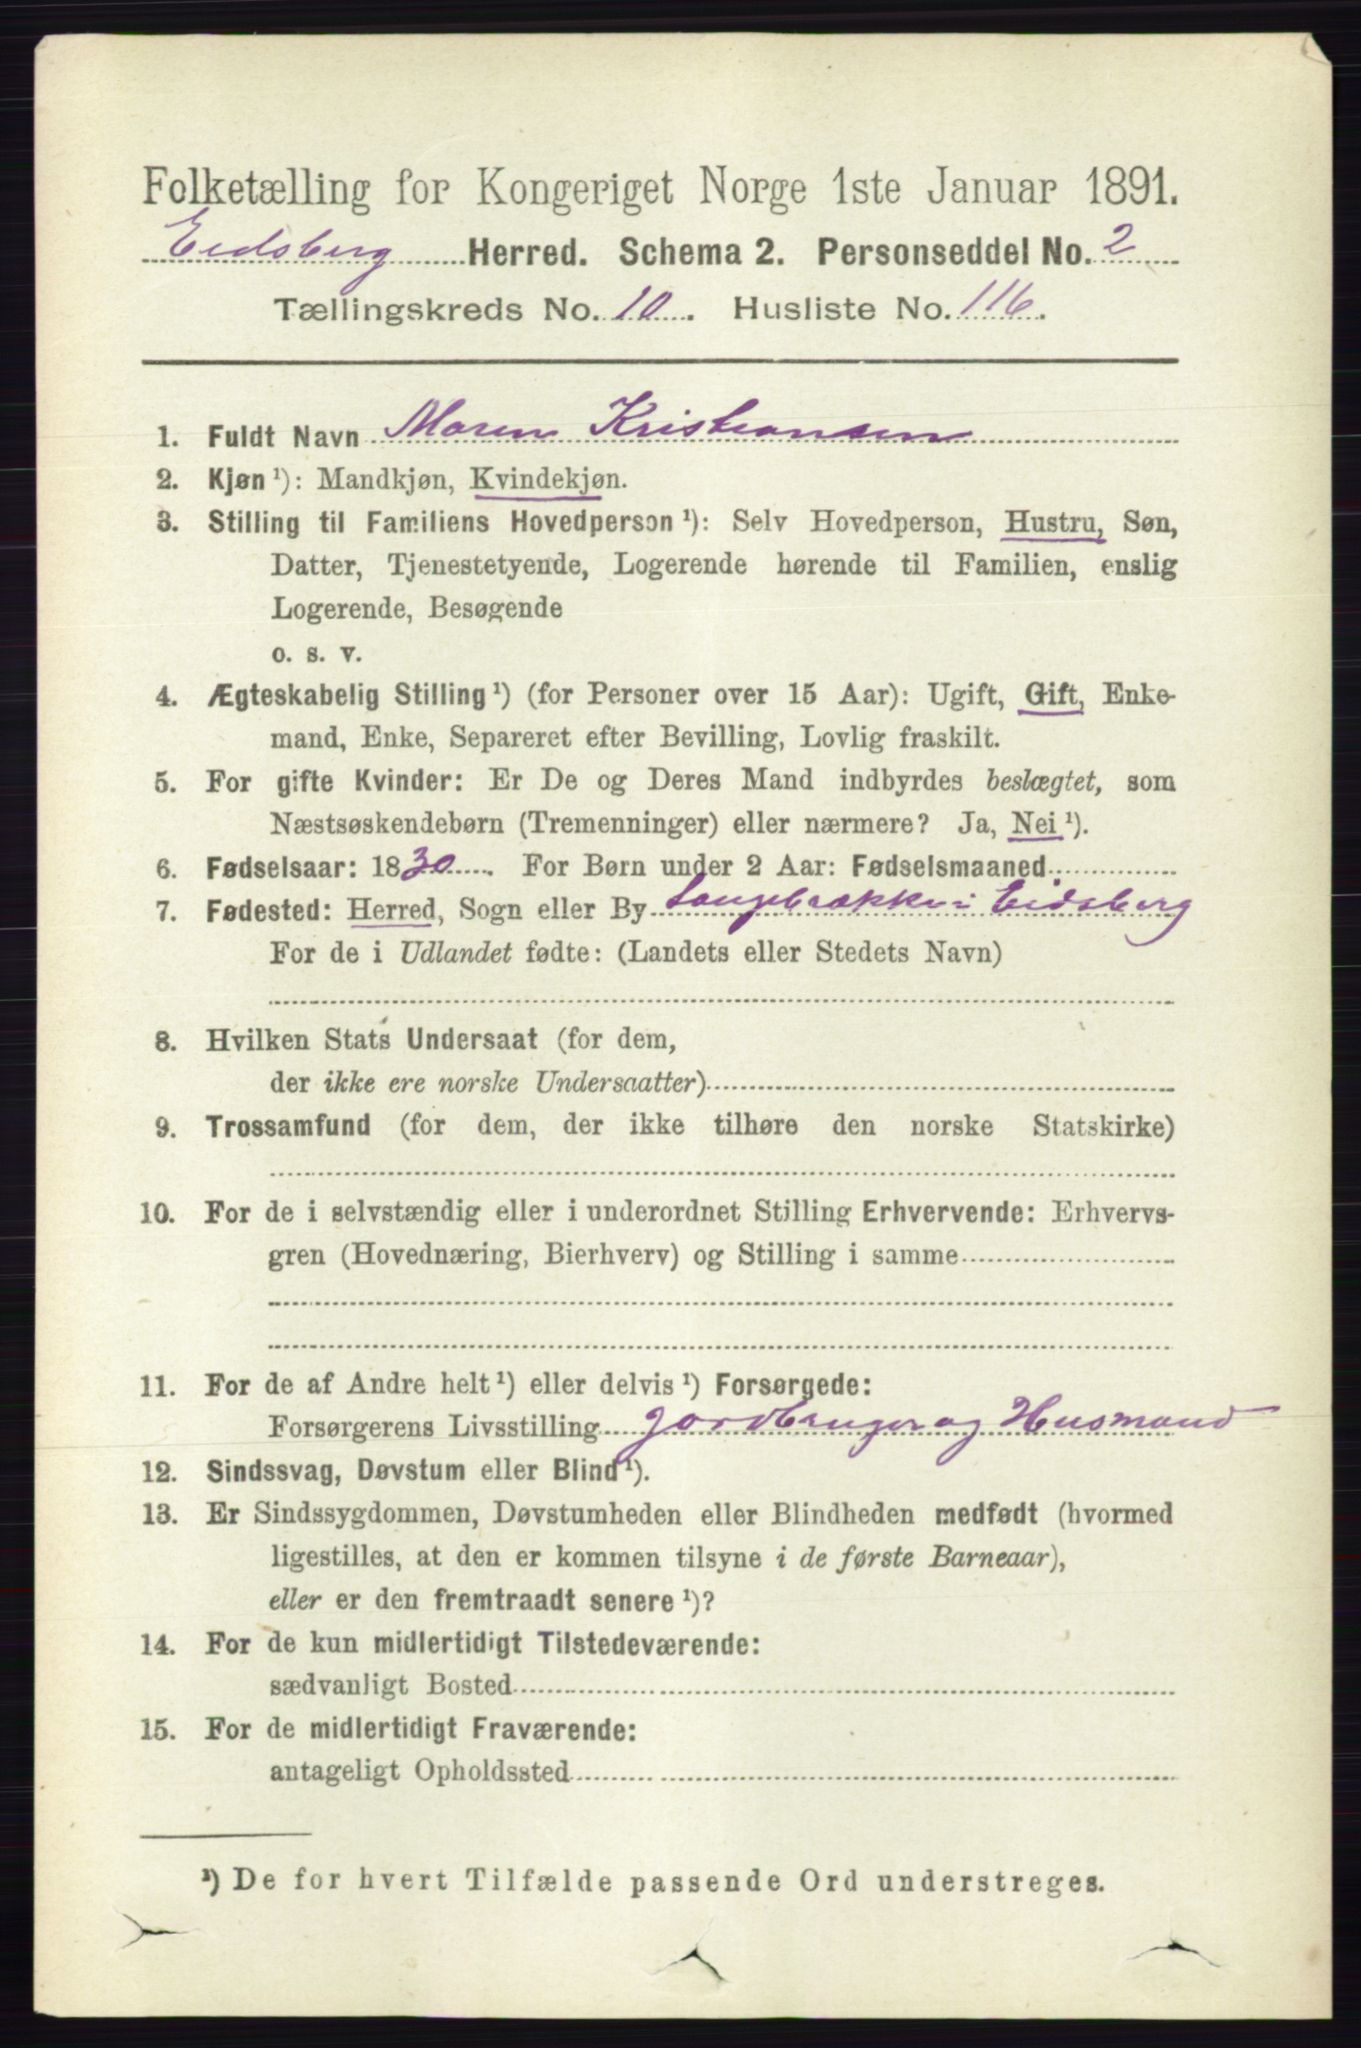 Folketælling for Kongeriget Norge 1ste Januar 1891.
Eidsberg Herred. Schema 2. Personseddel No. 2
Tællingskreds No. 10. Husliste No. 116.
1. Fuldt Navn Maren Kristiansen
2. Kjøn ¹): Mandkjøn, Kvindekjøn.
3. Stilling til Familiens Hovedperson ¹): Selv Hovedperson, Hustru, Søn,
Datter, Tjenestetyende, Logerende hørende til Familien, enslig
Logerende, Besøgende
o. s. v.
4. Ægteskabelig Stilling ¹) (for Personer over 15 Aar): Ugift, Gift, Enke-
mand, Enke, Separeret efter Bevilling, Lovlig fraskilt.
5. For gifte Kvinder: Er De og Deres Mand indbyrdes beslægtet, som
Næstsøskendebørn (Tremenninger) eller nærmere? Ja, Nei ¹).
6. Fødselsaar: 1830. For Børn under 2 Aar: Fødselsmaaned
7. Fødested: Herred, Sogn eller By Langebrække i Eidsberg
For de i Udlandet fødte: (Landets eller Stedets Navn)
8. Hvilken Stats Undersaat (for dem,
der ikke ere norske Undersaatter)
9. Trossamfund (for dem, der ikke tilhøre den norske Statskirke)
10. For de i selvstændig eller i underordnet Stilling Erhvervende: Erhvervs-
gren (Hovednæring, Bierhverv) og Stilling i samme
11. For de af Andre helt ¹) eller delvis ¹) Forsørgede:
Forsørgerens Livsstilling Jordbruger og Husmand
12. Sindssvag, Døvstum eller Blind ¹).
13. Er Sindssygdommen, Døvstumheden eller Blindheden medfødt (hvormed
ligestilles, at den er kommen tilsyne i de første Barneaar),
eller er den fremtraadt senere ¹)?
14. For de kun midlertidigt Tilstedeværende:
sædvanligt Bosted
15. For de midlertidigt Fraværende:
antageligt Opholdssted
¹) De for hvert Tilfælde passende Ord understreges.